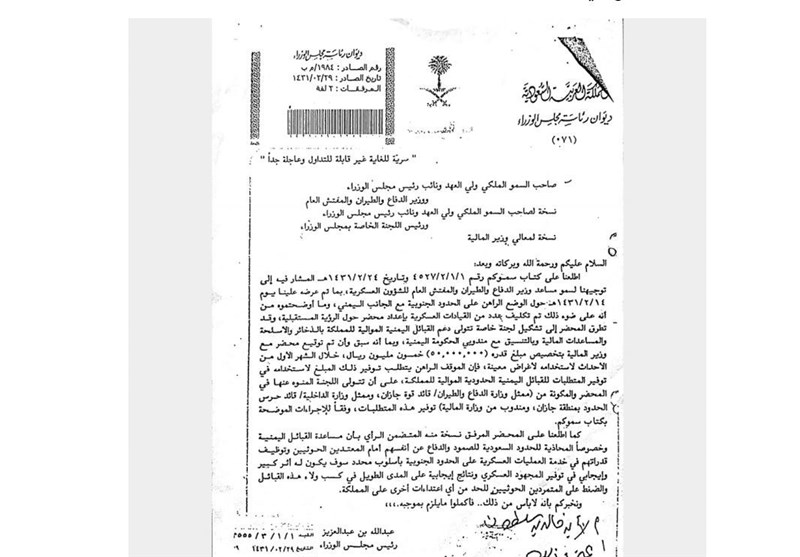 المملكة العربية السعودية
ديوان رئاسة مجلس الوزراء
(٠٧١)
ديوان رئاسة مجلس الوزراء
رقم الصادر : ١٩٨٤/م ب
تاريخ الصادر : ١٤٣١/٠٢/٢٩
المرفقات : ٢ لفة
" سرية للغاية غير قابلة للتداول وعاجلة جداً "
صاحب السمو الملكي ولي العهد ونائب رئيس مجلس الوزراء
ووزير الدفاع والطيران والمفتش العام
نسخة لصاحب السمو الملكي ولي العهد ونائب رئيس مجلس الوزراء
ورئيس اللجنة الخاصة بمجلس الوزراء
نسخة لمعالي وزير المالية
السلام عليكم ورحمة الله وبركاته وبعد:
اطلعنا على كتاب سموكم رقم ٤٥٢٧/٢/١/١ وتاريخ ١٤٣١/٢/٢٤هـ المشار فيه إلى
توجيهنا لسمو مساعد وزير الدفاع والطيران والمفتش العام للشؤون العسكرية، بما تم عرضه علينا يوم
١٤٣١/٢/١٤هـ حول الوضع الراهن على الحدود الجنوبية مع الجانب اليمني، وما أوضحتموه من
أنه على ضوء ذلك تم تكليف عدد من القيادات العسكرية بإعداد محضر حول الرؤية المستقبلية، وقد
تطرق المحضر إلى تشكيل لجنة خاصة تتولى دعم القبائل اليمنية الموالية للمملكة بالذخائر والاسلحة
والمساعدات المالية وبالتنسيق مع مندوبي الحكومة اليمنية، وبما أنه سبق وأن تم توقيع محضر مع
وزير المالية بتخصيص مبلغ قدره (٥٠,٠٠٠,٠٠٠) خمسون مليون ريال، خلال الشهر الأول من
الأحداث لاستخدامه لأغراض معينة، فإن الموقف الراهن يتطلب توفير ذلك المبلغ لاستخدامه في
توفير المتطلبات للقبائل اليمنية الحدودية الموالية للمملكة، على أن تتولى اللجنة المنوه عنها في
المحضر والمكونة من (ممثل وزارة الدفاع والطيران/ قائد قوة جازان، وممثل وزارة الداخلية/ قائد حرس
الحدود بمنطقة جازان، ومندوب من وزارة المالية) توفير هذه المتطلبات، وفقاً للإجراءات الموضحة
بكتاب سموكم.
كما اطلعنا على المحضر المرفق نسخة منه المتضمن الرأي بأن مساعدة القبائل اليمنية
وخصوصاً المحاذية للحدود السعودية للصمود والدفاع عن أنفسهم أمام المعتدين الحوثيين وتوظيف
قدراتهم في خدمة العمليات العسكرية على الحدود الجنوبية بأسلوب محدد سوف يكون له أثر كبير
وإيجابي في توفير المجهود العسكري ونتائج إيجابية على المدى الطويل في كسب ولاء هذه القبائل
والضغط على المتمردين الحوثيين للحد من أي اعتداءات أخرى على المملكة.
ونخبركم بأنه لابأس من ذلك.. فأكملوا مايلزم بموجبه،،،
عبدالله بن عبدالعزيز
رئيس مجلس الوزراء